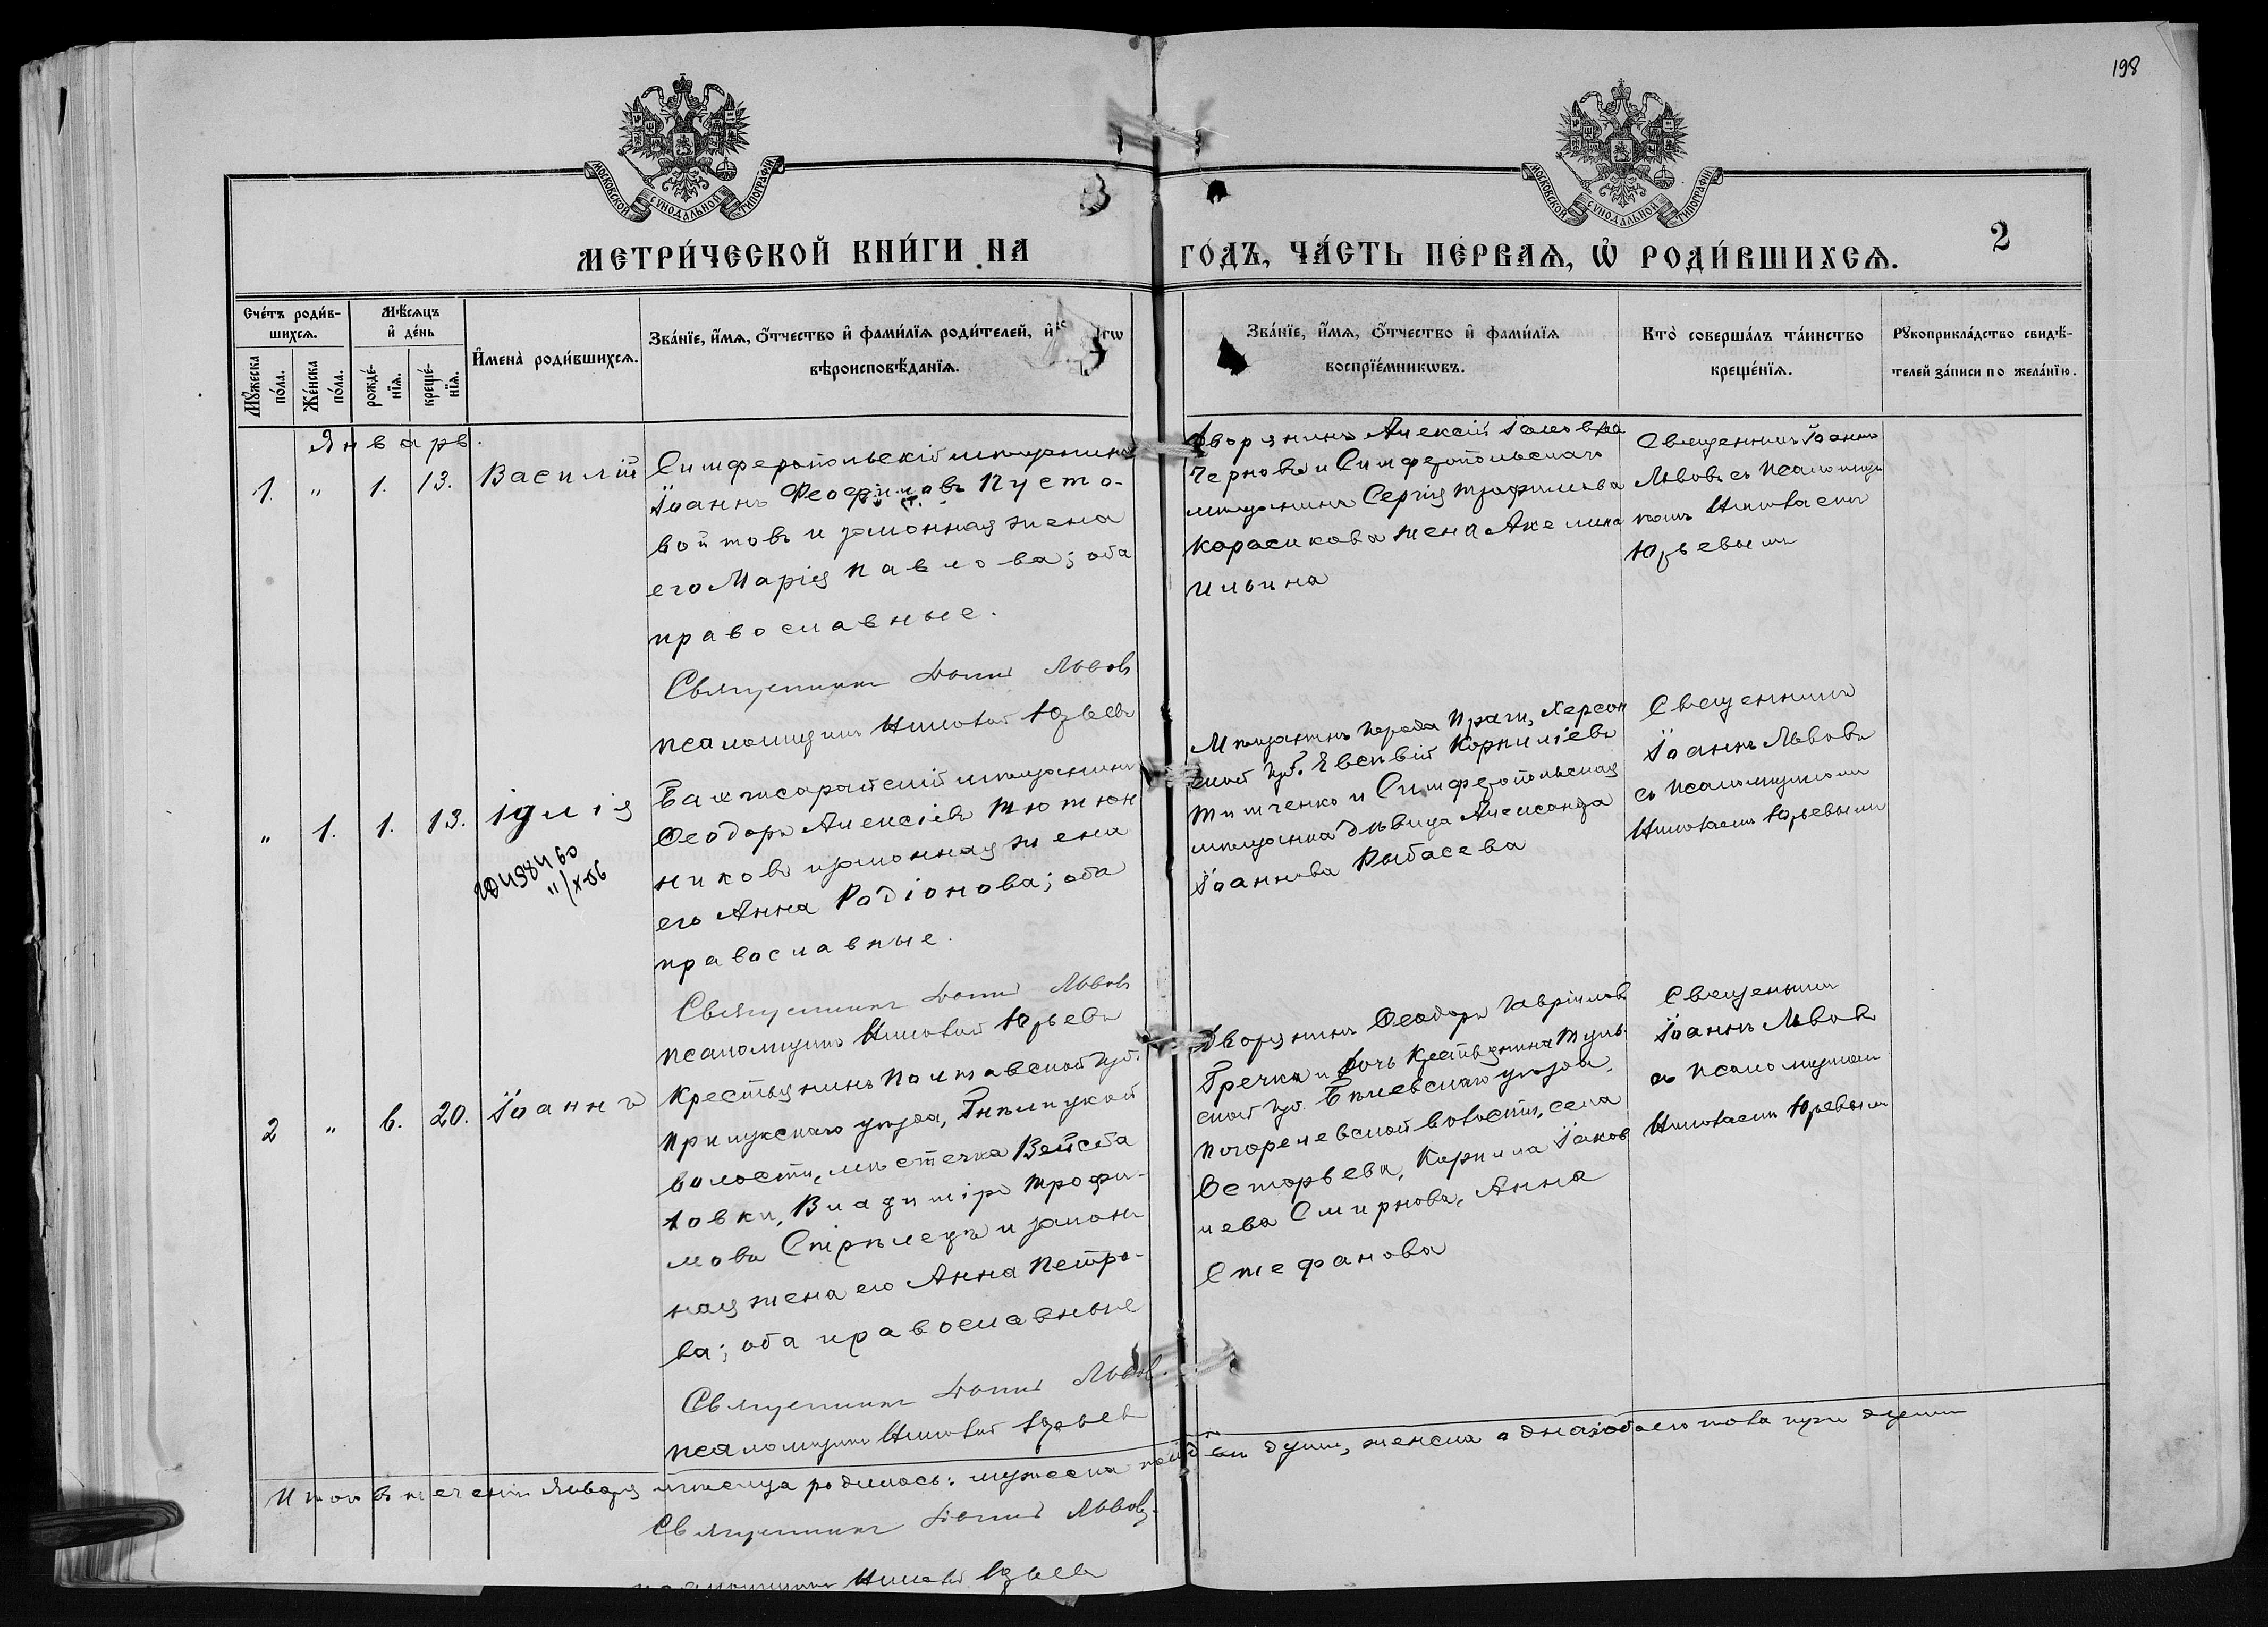 198
МОСКОВСКОЙ СѴНОДАЛЬНОЙ ТИПОГРАФІИ
МОСКОВСКОЙ СѴНОДАЛЬНОЙ ТИПОГРАФІИ
МЕТРИ́ЧЕСКОЙ КНИ́ГИ НА
ГО́ДЪ, ЧА́СТЬ ПЕ́РВАѦ, Ѡ҆ РОДИ́ВШИХСѦ.
2
Сче́тъ роди́в-
шихсѧ.
Мꙋ́жеска по́ла.
Же́нска по́ла.
Мѣ́сѧцъ
и҆ де́нь
рожде́-
нїѧ.
креще́-
нїѧ.
И҆мена̀ роди́вшихсѧ.
Зва́нїе, и҆́мѧ, ѻ҆́тчество и҆ фами́лїѧ роди́телей, и҆
вѣроисповѣ́данїѧ.
Зва́нїе, и҆́мѧ, ѻ҆́тчество и҆ фами́лїѧ
воспрїе́мникѡвъ.
Кто̀ соверша́лъ та́инство
креще́нїѧ.
Рꙋкоприкла́дство свидѣ́-
телей за́писи по жела́нїю.
Январь.
1. " 1. 13. Василій
Симферопольскій мѣщанинъ
Іоаннъ Феофиловъ Пусто-
войтовъ и законная жена
его Марія Павлова; оба
православные.
Священникъ Іоаннъ Львовъ
псаломщикъ Николай Юрьевъ
Дворянинъ Алексій
Черновъ и Симферопольскаго
мѣщанина Сергія Трофимова
Карасикова жена Акелина
Ильина
Священникъ Іоаннъ
Львовъ съ псаломщи
комъ Николаемъ
Юрьевымъ
" 1. 1. 13. Іулія
11/X-06
Бахчисарайскій мѣщанинъ
Феодоръ Алексіевъ Тютюн
никовъ и законная жена
его Анна Родіонова; оба
православные.
Священникъ Іоаннъ Львовъ
псаломщикъ Николай Юрьевъ
Мѣщанинъ города Праги, Херсон
ской губ. Евсевій Корниліевъ
Тимченко и Симферопольская
мѣщанка дѣвица Александра
Іоаннова Рыбасева
Священникъ
Іоаннъ Львовъ
съ псаломщикомъ
Николаемъ Юрьевымъ
2 " 6. 20. Іоаннъ
Крестьянинъ Полтавской губ.
Прилукскаго уѣзда, Гнѣлицкой
волости, мѣстечка
Владиміръ Трофи-
мовъ Стрѣлецъ и закон
ная жена его Анна Петро-
ва; оба православные
Священникъ Іоаннъ Львовъ.
псаломщикъ Николай Юрьевъ
Дворянинъ Феодоръ Гавріиловъ
Гречка и дочь крестьянина Туль-
ской губ. Бѣлевскаго уѣзда,
Погорелевской волости, села
Корнила Іаков
лева Смирнова, Анна
Стефанова
Священникъ
Іоаннъ Львовъ
съ псаломщикомъ
Николаемъ Юрьевымъ
Итого въ теченіи Января мѣсяца родилось: мужеска пола двѣ души, женска одна, обоего пола три души
Священникъ Іоаннъ Львовъ.
псаломщикъ Николай Юрьевъ